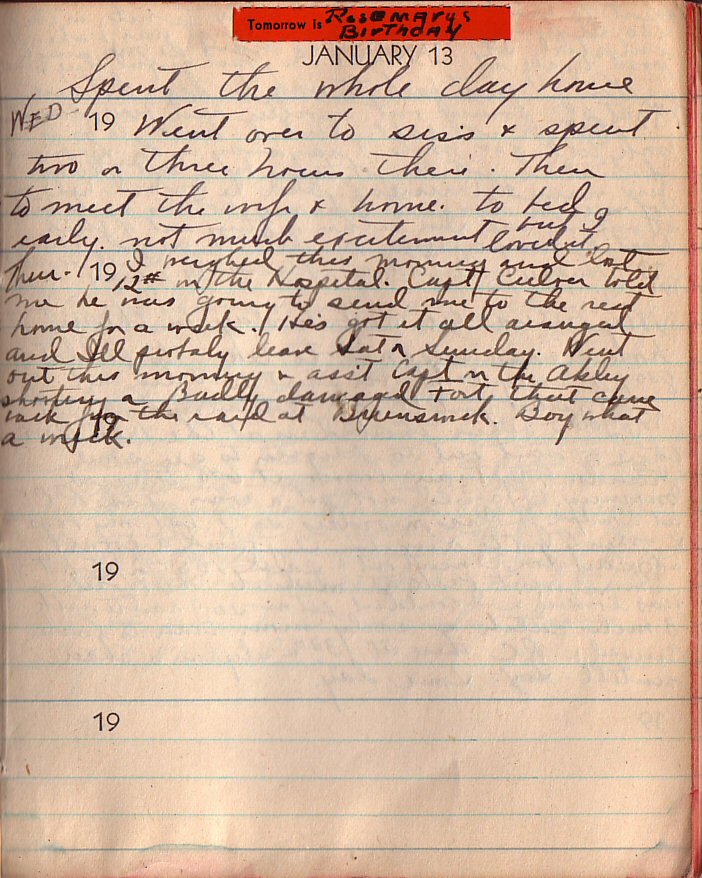 Tomorrow is ROSEMARYS
BIRTHDAY
JANUARY 13
Spent the whole day home
WED- 19 Went over to sis's & spent
two or three hours there. Then
to meet the wife & home. to bed
early. not much excitement but I
loved it.
Thur. I weighed this morning and lost
19 12# in the Hospital. Capt Culver told
me he was going to send me to the rest
home for a week. He's got it all arranged
and I'll probaly leave Sat or Sunday. Went
out this morning & asst Capt in the
shooting a Badly damaged Fort that came
back from the raid at Brunswick. Boy what
19
a wreck.
19
19